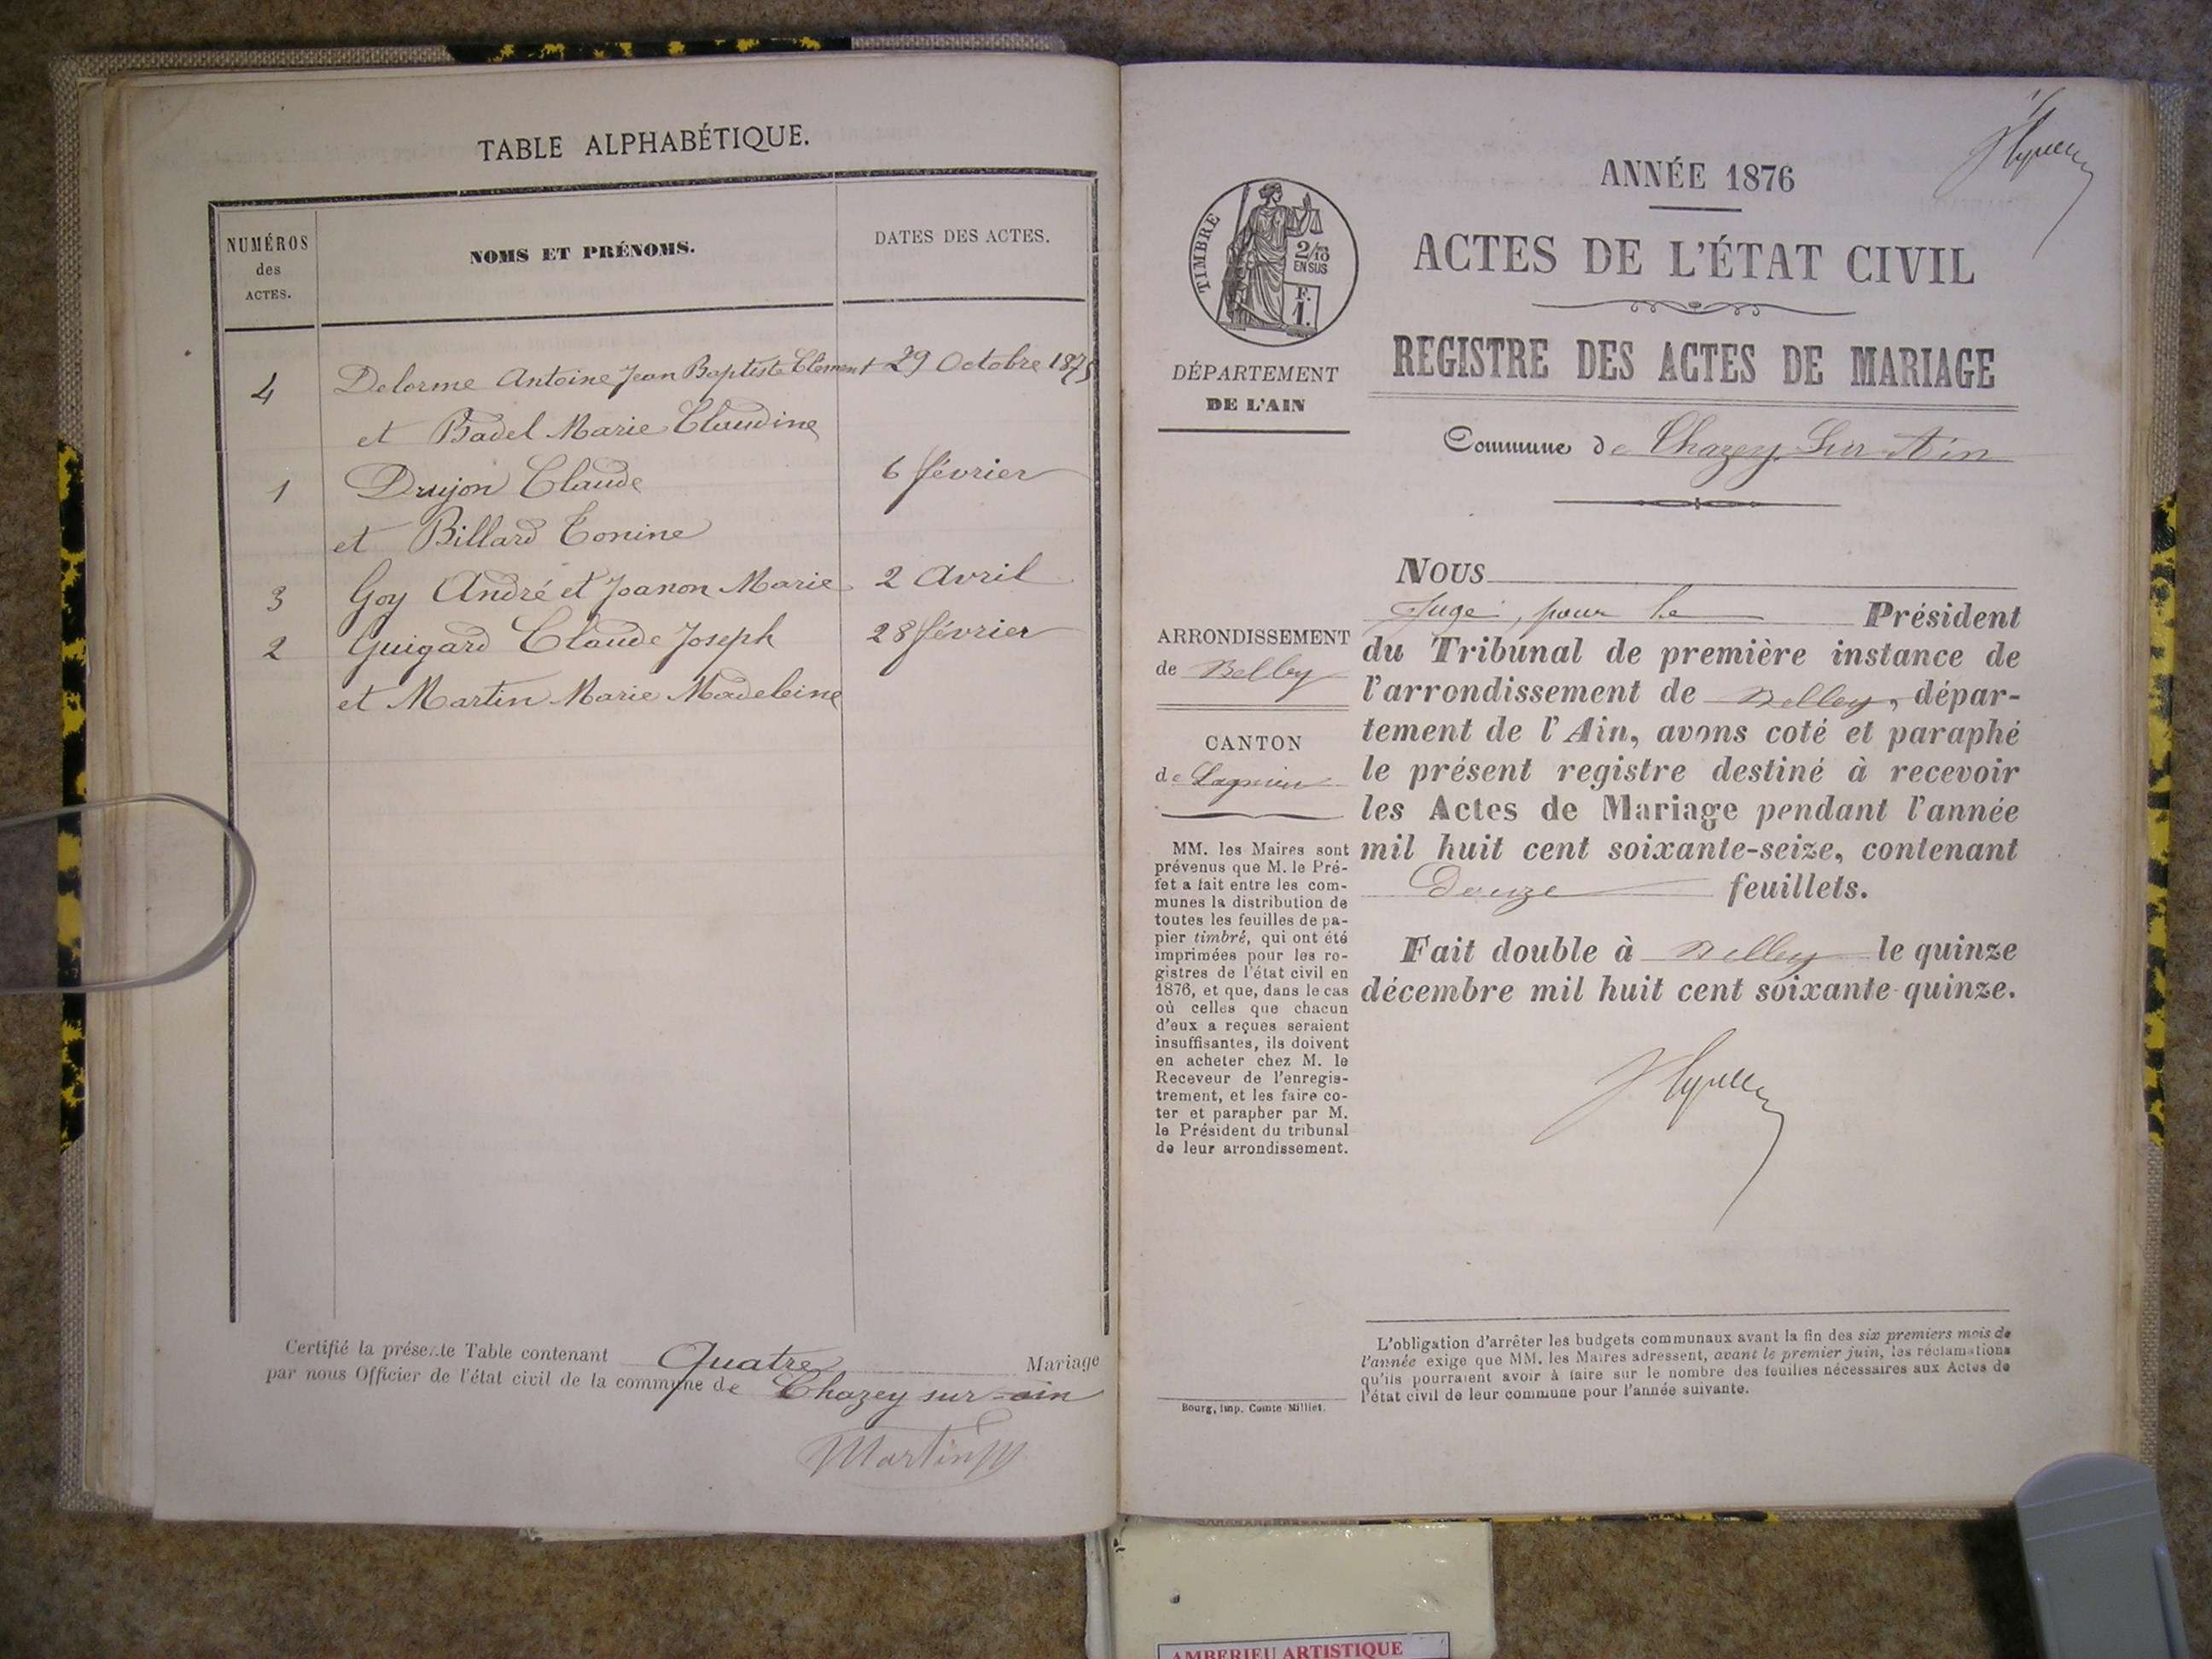 TABLE ALPHABÉTIQUE.
NUMÉROS
des
ACTES.
NOMS ET PRÉNOMS.
DATES DES ACTES.
4 Delorme Antoine Jean Baptiste Clément 29 Octobre 1875
et Badel Marie Claudine
1 Drujon Claude 6 février
et Billard Tonine
3 Goy André et Joanon Marie 2 Avril
2 Guigard Claude Joseph 28 février
et Martin Marie Madeleine
Certifié la présente Table contenant Quatre Mariage
par nous Officier de l'état civil de la commune de Chazey sur-ain
Martin
ANNÉE 1876
TIMBRE
2/10
EN SUS
F.
1.
ACTES DE L'ÉTAT CIVIL
REGISTRE DES ACTES DE MARIAGE
DÉPARTEMENT
DE L'AIN
Commune de Chazey-Sur-Ain
ARRONDISSEMENT
de Belley
CANTON
de Lagnieu
MM. les Maires sont
prévenus que M. le Pré-
fet a fait entre les com-
munes la distribution de
toutes les feuilles de pa-
pier timbré, qui ont été
imprimées pour les re-
gistres de l'état civil en
1876, et que, dans le cas
où celles que chacun
d'eux a reçues seraient
insuffisantes, ils doivent
en acheter chez M. le
Receveur de l'enregis-
trement, et les faire co-
ter et parapher par M.
le Président du tribunal
de leur arrondissement.
Bourg, imp. Comte-Milliet.
NOUS
Juge, pour le Président
du Tribunal de première instance de
l'arrondissement de Belley, dépar-
tement de l'Ain, avons coté et paraphé
le présent registre destiné à recevoir
les Actes de Mariage pendant l'année
mil huit cent soixante-seize, contenant
Douze feuillets.
Fait double à Belley le quinze
décembre mil huit cent soixante-quinze.
L'obligation d'arrêter les budgets communaux avant la fin des six premiers mois de
l'année exige que MM. les Maires adressent, avant le premier juin, les réclamations
qu'ils pourraient avoir à faire sur le nombre des feuilles nécessaires aux Actes de
l'état civil de leur commune pour l'année suivante.
AMBERIEU ARTISTIQUE